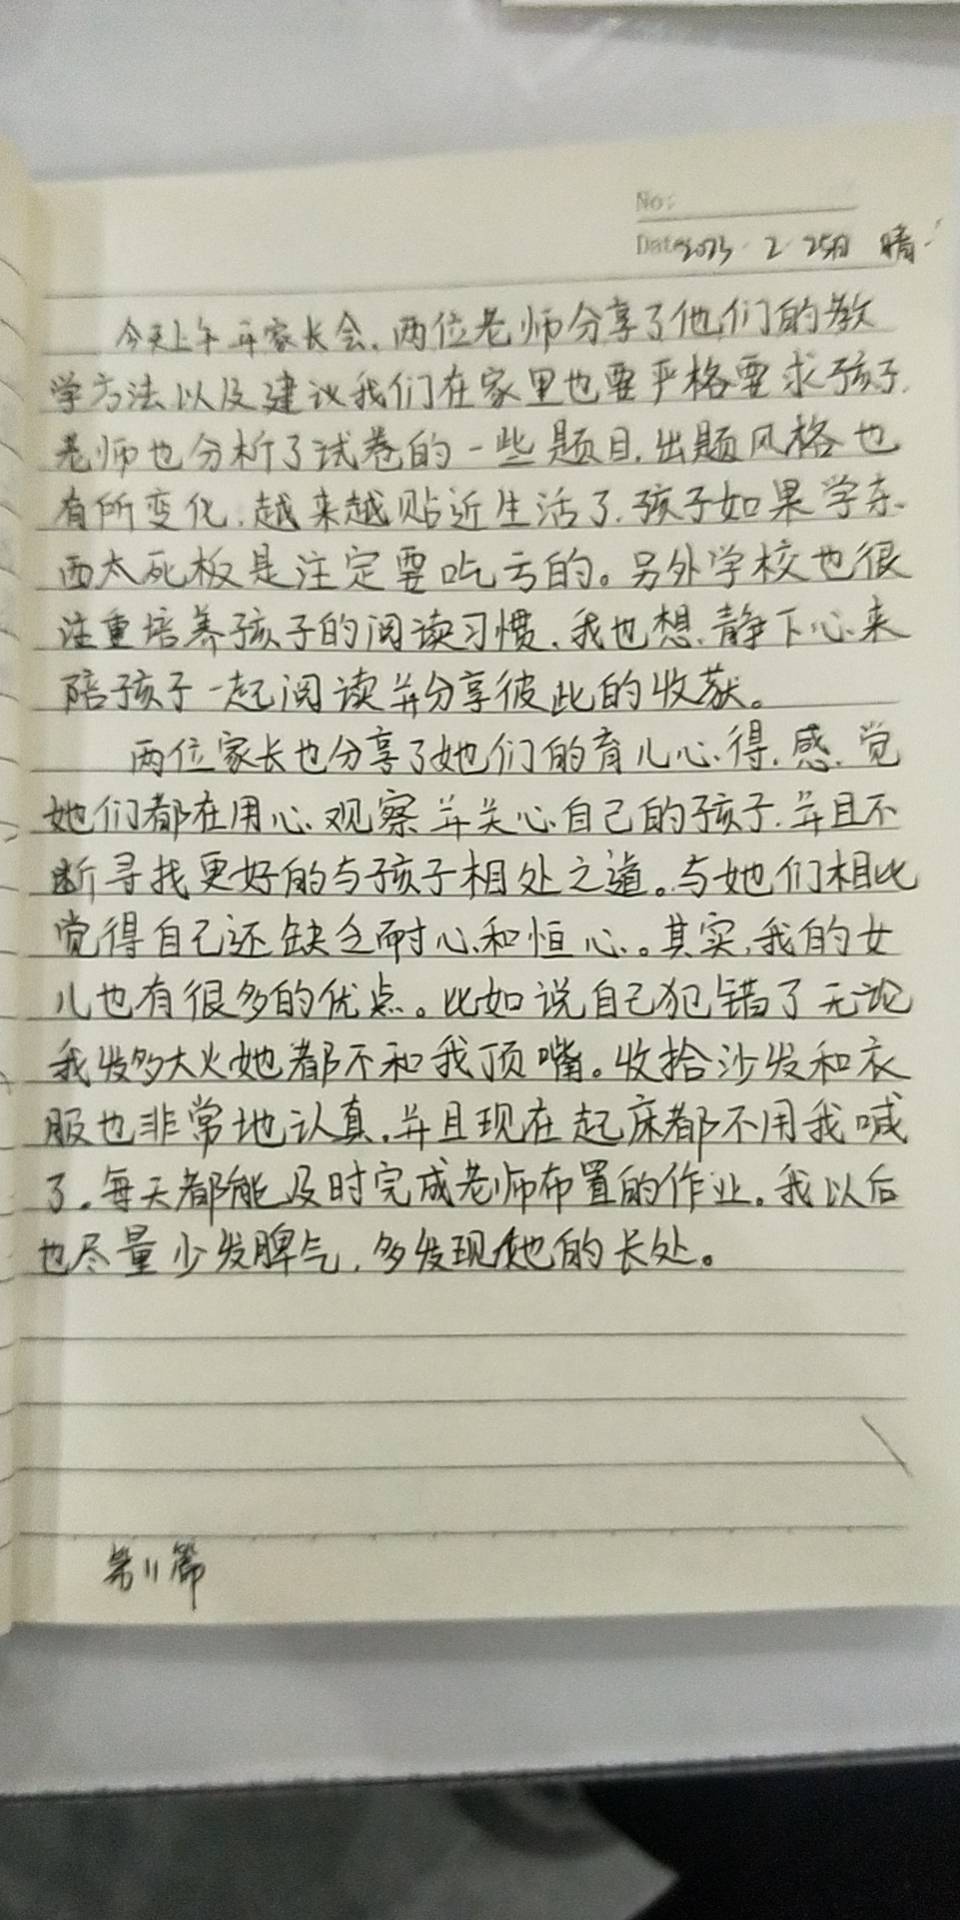 No:
Date: 2023.2.25日 晴
今天上午开家长会,两位老师分享了他们的教
学方法以及建议我们在家里也要严格要求孩子.
老师也分析了试卷的一些题目.出题风格也
有所变化.越来越贴近生活了.孩子如果学东
西太死板是注定要吃亏的。另外学校也很
注重培养孩子的阅读习惯.我也想静下心来
陪孩子一起阅读并分享彼此的收获。
两位家长也分享了她们的育儿心得.感觉
她们都在用心观察并关心自己的孩子.并且不
断寻找更好的与孩子相处之道。与她们相比
觉得自己还缺乏耐心和恒心。其实,我的女
儿也有很多的优点。比如说自己犯错了无论
我发多大火她都不和我顶嘴。收拾沙发和衣
服也非常地认真.并且现在起床都不用我喊
了。每天都能及时完成老师布置的作业。我以后
也尽量少发脾气,多发现她的长处。
第11篇